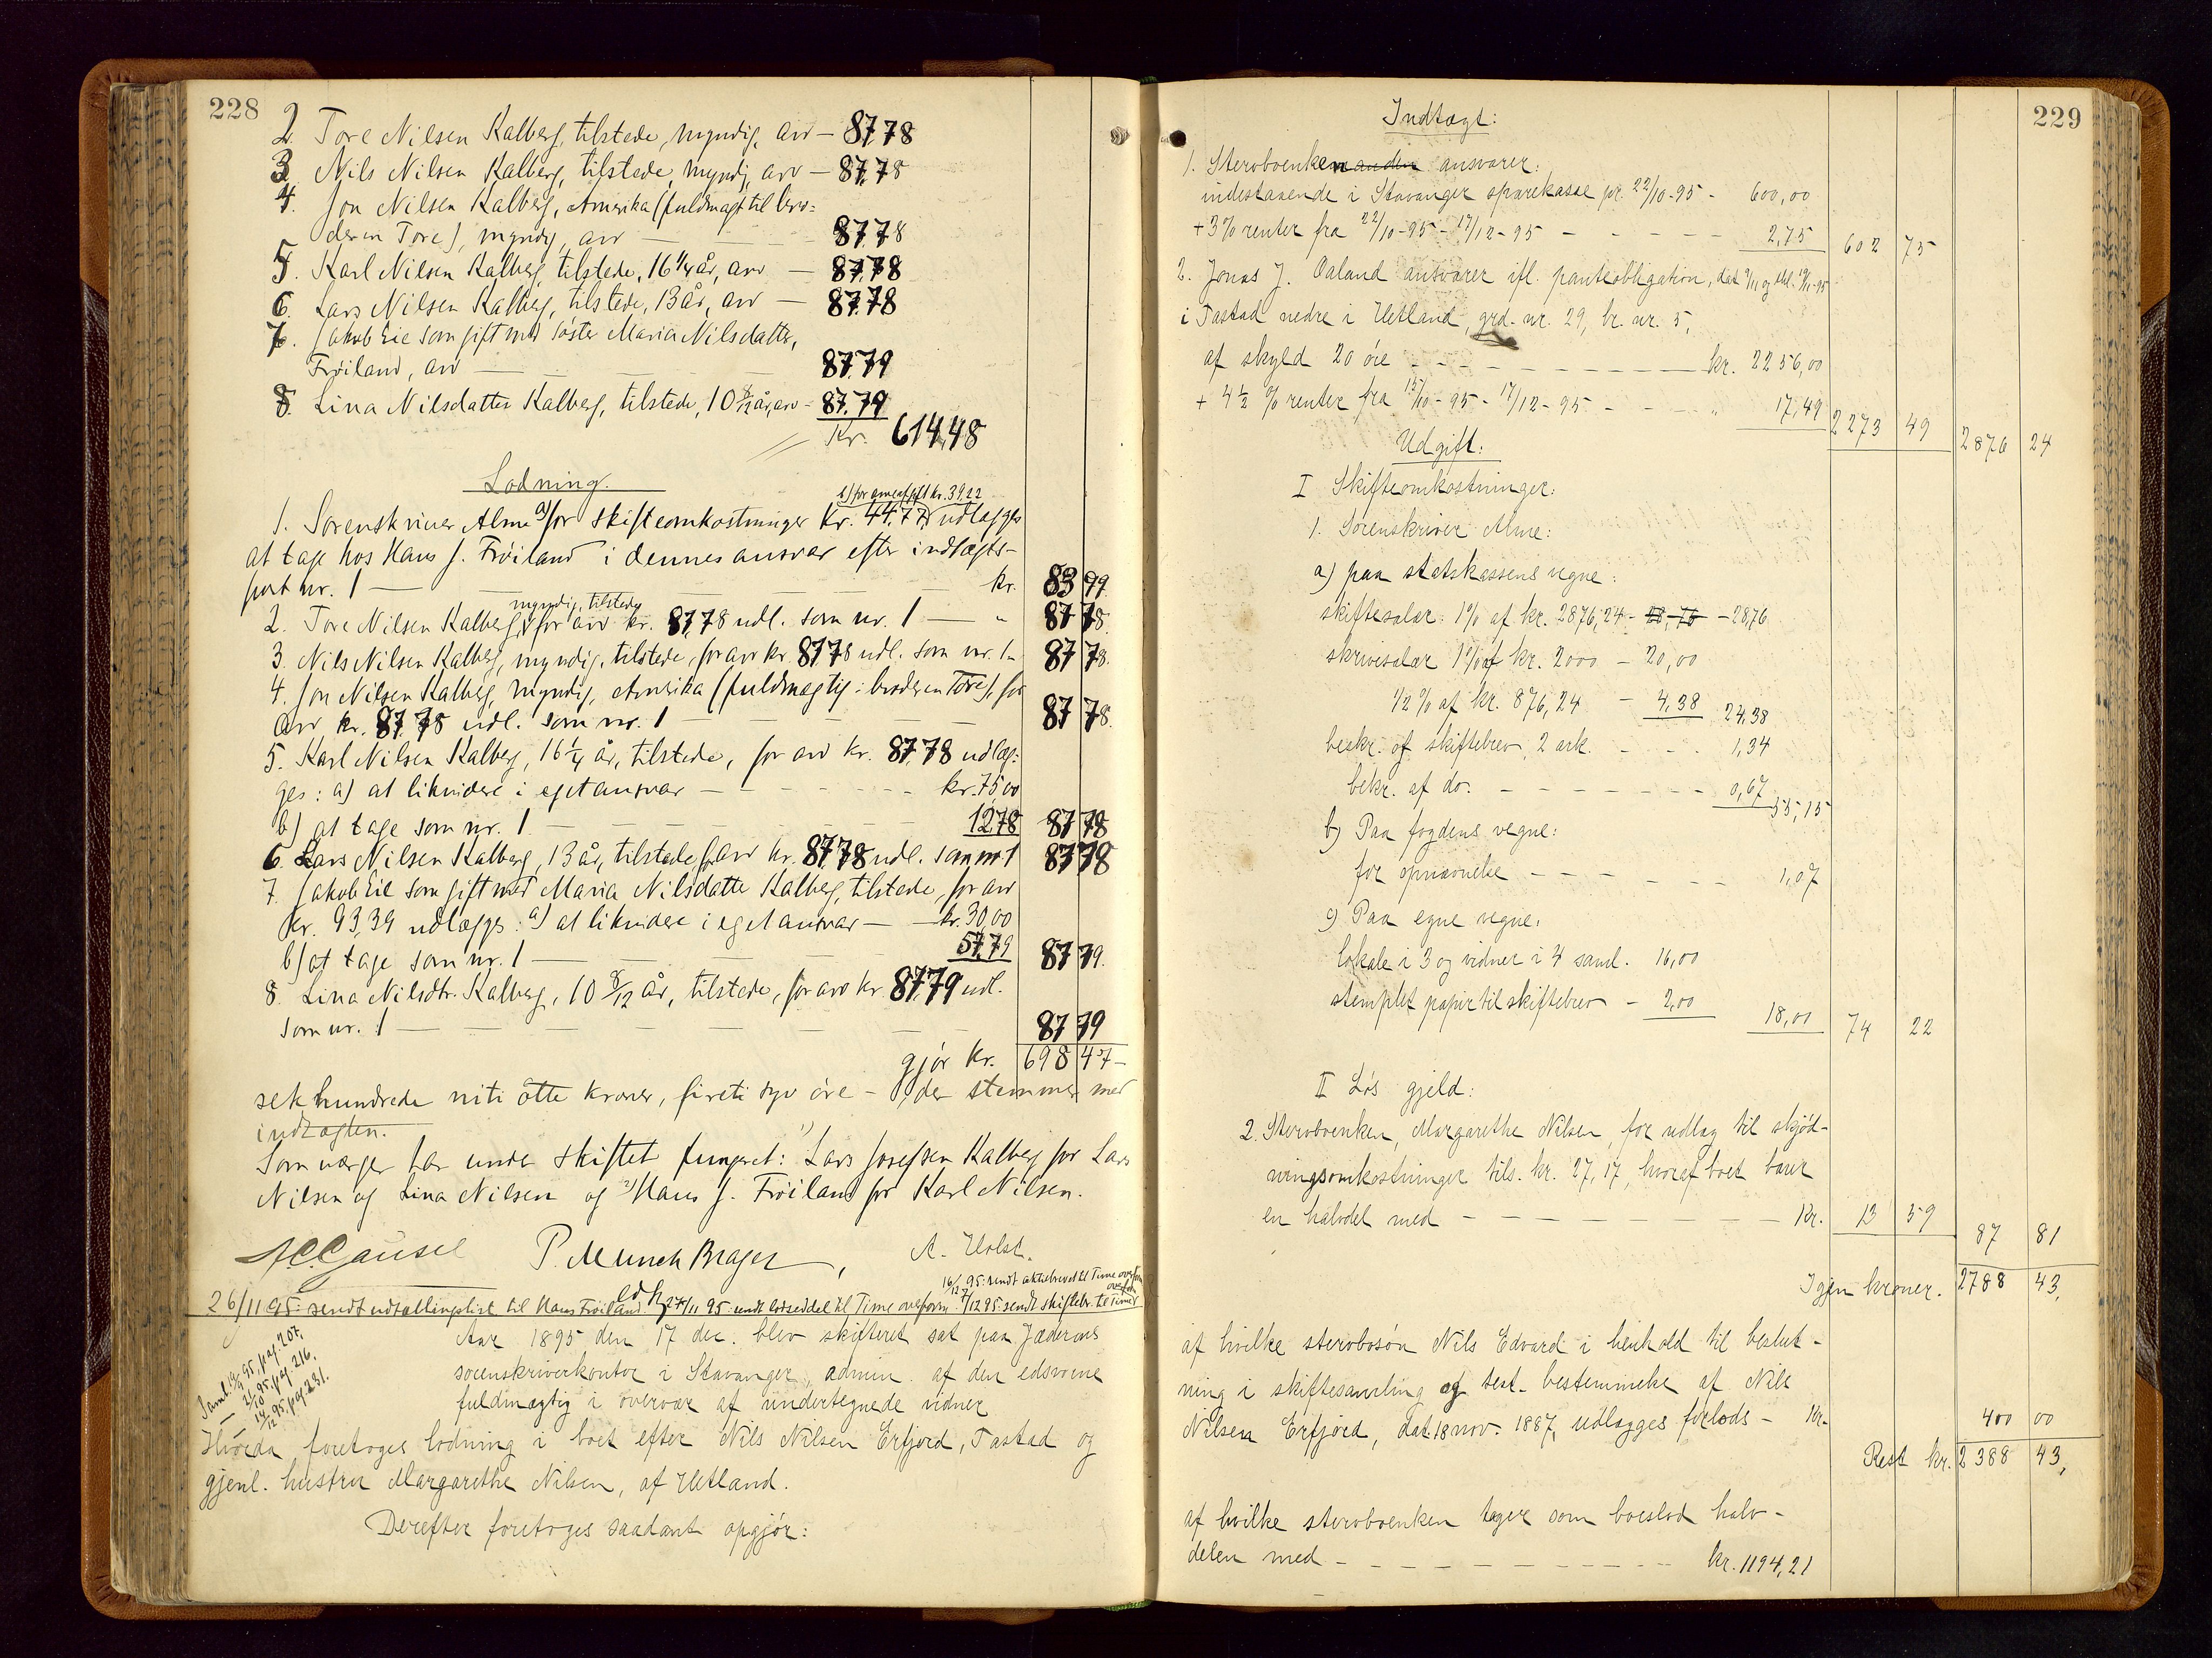 228
2. Tore Nilsen Kalberg, tilstede, myndig, arv — 87,78
3. Nils Nilsen Kalberg, tilstede, myndig, arv — 87,78
4. Jon Nilsen Kalberg, Amerika (fuldmagt til bro-
deren Tore), myndig, arv — 87,78
5. Karl Nilsen Kalberg, tilstede, 16 1/4 år, arv — 87,78
6. Lars Nilsen Kalberg, tilstede, 13 år, arv — 87,78
7. Jakob Eie som gift med søster Maria Nilsdatter,
Frøiland, arv — 87,79
8. Lina Nilsdatter Kalberg, tilstede, 10 8/12 år, arv - 87,79
Kr. 614,48
Lodning.
b) for arveafgift kr. 39,22
1. Sorenskriver Alme a) for skifteomkostninger kr. 44,77, udlægges
at tage hos Hans J. Frøiland i dennes ansvar efter indtægts-
post nr. 1 — kr. 83 99
myndig, tilstede
2. Tore Nilsen Kalberg, for arv kr. 87,78 udl. som nr. 1 — " 87 78.
3. Nils Nilsen Kalberg, myndig, tilstede, for arv kr. 87,78 udl. som nr. 1 - 87 78.
4. Jon Nilsen Kalberg, myndig, Amerika (fuldmægtig: broderen Tore), for
arv kr. 87,78 udl. som nr. 1 — 87 78.
5. Karl Nilsen Kalberg, 16 1/4 år, tilstede, for arv kr. 87,78 udlæg-
ges: a) at likvidere i eget ansvar — kr. 75,00
b) at tage som nr. 1 — 12,78 87 78
6. Lars Nilsen Kalberg, 13 år, tilstede, for arv kr. 87,78 udl. som nr. 1 87 78
7. Jakob Eie som gift med Maria Nilsdatter Kalberg, tilstede, for arv
kr. 93,39 udlægges: a) at likvidere i eget ansvar — kr. 30,00
b) at tage som nr. 1 — 57,79 87 79.
8. Lina Nilsdtr. Kalberg, 10 8/12 år, tilstede, for arv kr. 87,79 udl.
som nr. 1 — 87 79
gjør kr. 698 47 -
seks hundrede niti otte kroner, fireti syv øre — der stemmer med
indtægten.
Som værger har under skiftet fungeret: 1) Lars Josefsen Kalberg for Lars
Nilsen og Lina Nilsen og 2) Hans J. Frøiland for Karl Nilsen.
A.C. Gausel P. Munch Brager, A. Holst.
edf.
16/12 95: sendt aktiebrevet til Time overform.
26/11 95: sendt udtællingslist til Hans Frøiland. 27/11 95: sendt lodseddel til Time overform. 7/12 95: sendt skiftebr. til Time overfm
Saml. 19/9 95, pag. 207.
— 21/10 95, pag. 216.
— 14/12 95, pag. 231.
Aar 1895 den 17 dec. blev skifteret sat paa Jæderens
sorenskriverkontor i Stavanger, admin. af den edsvorne
fuldmægtig i overvær af undertegnede vidner
Hvorda foretoges lodning i boet efter Nils Nilsen Erfjord, Tastad og
gjenl. hustru Margarethe Nilsen, af Hetland.
Derefter foretoges saadant opgjør:
229
Indtægt:
1. Stervboenken anden ansvarer:
indestaaende i Stavanger sparekasse pr. 22/10-95 - 600,00
+ 3% renter fra 22/10-95 - 17/12-95 - 2,75 602 75
2. Jonas J. Aaland ansvarer ifl. panteobligation, dat. 9/11 og thl. 19/11-95
i Tastad nedre i Hetland, grd. nr. 29, br. nr. 5,
af skyld 20 øre — kr. 2256,00
+ 4 1/2 % renter fra 15/10-95 - 17/12-95 - " 17,49 2273 49 2876 24
Udgift:
I Skifteomkostninger:
1. Sorenskriver Alme:
a) paa statskassens vegne:
skiftesalær: 1% af kr. 2876,24 - 28,76 - 28,76
skrivesalær 1% af kr. 2000 - 20,00
1/2% af kr. 876,24 - 4,38 24,38
beskr. af skiftebrev, 2 ark. - 1,34
bekr. af do. - 0,67 55,15
b) Paa fogdens vegne:
for opnævnelse - 1,07
c) Paa egne vegne:
lokale i 3 og vidner i 4 saml. 16,00
stemplet papir til skiftebrev - 2,00 18,00 74 22
II Løs gjeld:
2. Stervboenken, Margarethe Nilsen, for udlæg til skjød-
ningsomkostninger tils. kr. 27,17, hvoraf boet bærer
en halvdel med — Kr. 13 59 87 81
Igjen kroner. 2788 43,
af hvilke stervbosøn Nils Edvard i henhold til beslut-
ning i skiftesamling og test. bestemmelse af Nils
Nilsen Erfjord, dat. 18 nov. 1887, udlægges forlods - kr. 400 00
Rest kr. 2388 43,
af hvilke stervboenken tager som boeslod halv-
delen med — kr. 1194,21